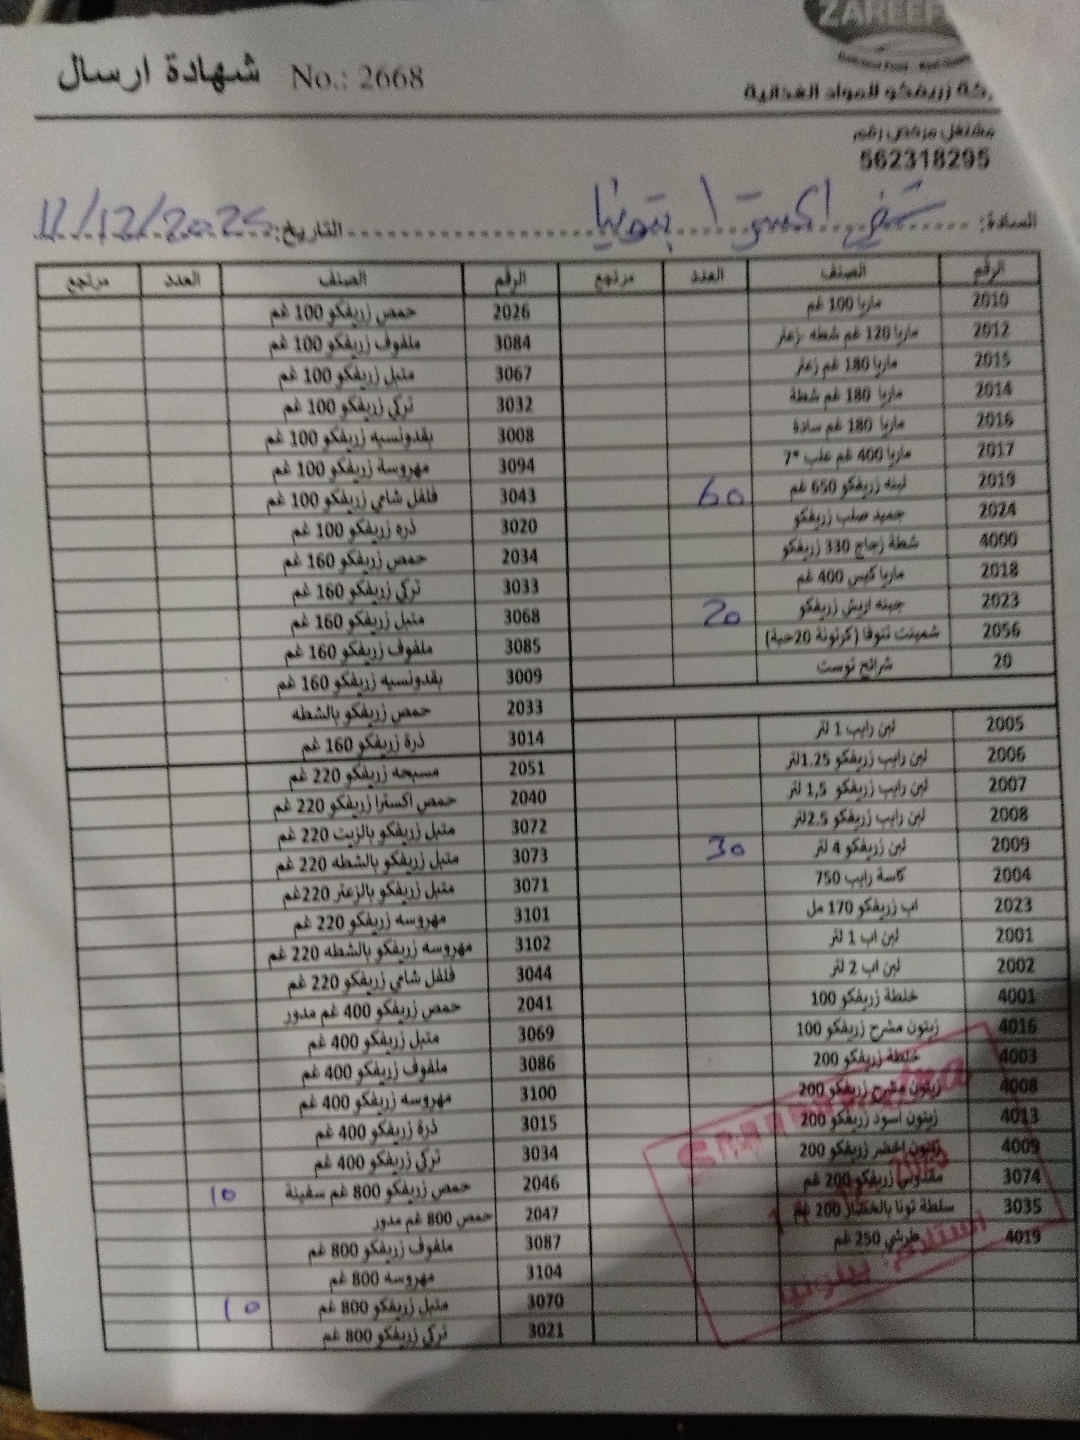 ZAREEF
شهادة ارسال No.: 2668
ركة زريفكو للمواد الغذائية
مشتغل مرخص رقم
562318295
السادة: اكسترا بتونيا التاريخ: 11/12/2025
الرقم الصنف العدد مرتجع الرقم الصنف العدد مرتجع
2010 ماريا 100 غم 2026 حمص زريفكو 100 غم
2012 ماريا 120 غم شطه -زعتر 3084 ملفوف زريفكو 100 غم
2015 ماريا 180 غم زعتر 3067 متبل زريفكو 100 غم
2014 ماريا 180 غم شطة 3032 تركي زريفكو 100 غم
2016 ماريا 180 غم سادة 3008 بقدونسيه زريفكو 100 غم
2017 ماريا 400 غم علب *7 3094 مهروسة زريفكو 100 غم
2019 لبنه زريفكو 650 غم 60 3043 فلفل شامي زريفكو 100 غم
2024 جميد صلب زريفكو 3020 ذره زريفكو 100 غم
4000 شطة زجاج 330 زريفكو 2034 حمص زريفكو 160 غم
2018 ماريا كيس 400 غم 3033 تركي زريفكو 160 غم
2023 جبنه اريش زريفكو 20 3068 متبل زريفكو 160 غم
2056 شمينت تنوفا (كرتونة 20حبة) 3085 ملفوف زريفكو 160 غم
20 شرائح توست 3009 بقدونسيه زريفكو 160 غم
2033 حمص زريفكو بالشطه
2005 لبن رايب 1 لتر 3014 ذرة زريفكو 160 غم
2006 لبن رايب زريفكو 1.25لتر 2051 مسبحه زريفكو 220 غم
2007 لبن رايب زريفكو 1,5 لتر 2040 حمص اكسترا زريفكو 220 غم
2008 لبن رايب زريفكو 2.5لتر 3072 متبل زريفكو بالزيت 220 غم
2009 لبن زريفكو 4 لتر 30 3073 متبل زريفكو بالشطه 220 غم
2004 كاسة رايب 750 3071 متبل زريفكو بالزعتر 220غم
2023 اب زريفكو 170 مل 3101 مهروسه زريفكو 220 غم
2001 لبن اب 1 لتر 3102 مهروسه زريفكو بالشطه 220 غم
2002 لبن اب 2 لتر 3044 فلفل شامي زريفكو 220 غم
4001 خلطة زريفكو 100 2041 حمص زريفكو 400 غم مدور
4016 زيتون مشرح زريفكو 100 3069 متبل زريفكو 400 غم
4003 خلطة زريفكو 200 3086 ملفوف زريفكو 400 غم
4008 زيتون مشرح زريفكو 200 3100 مهروسه زريفكو 400 غم
4013 زيتون اسود زريفكو 200 3015 ذرة زريفكو 400 غم
4009 زيتون اخضر زريفكو 200 3034 تركي زريفكو 400 غم
3074 مقدوس زريفكو 200 غم 2046 حمص زريفكو 800 غم سفينة 10
3035 سلطة تونا بالخضار 200 غم 2047 حمص 800 غم مدور
4019 طرشي 250 غم 3087 ملفوف زريفكو 800 غم
3104 مهروسه 800 غم
3070 متبل زريفكو 800 غم 10
3021 تركي زريفكو 800 غم
استلام بيتونيا